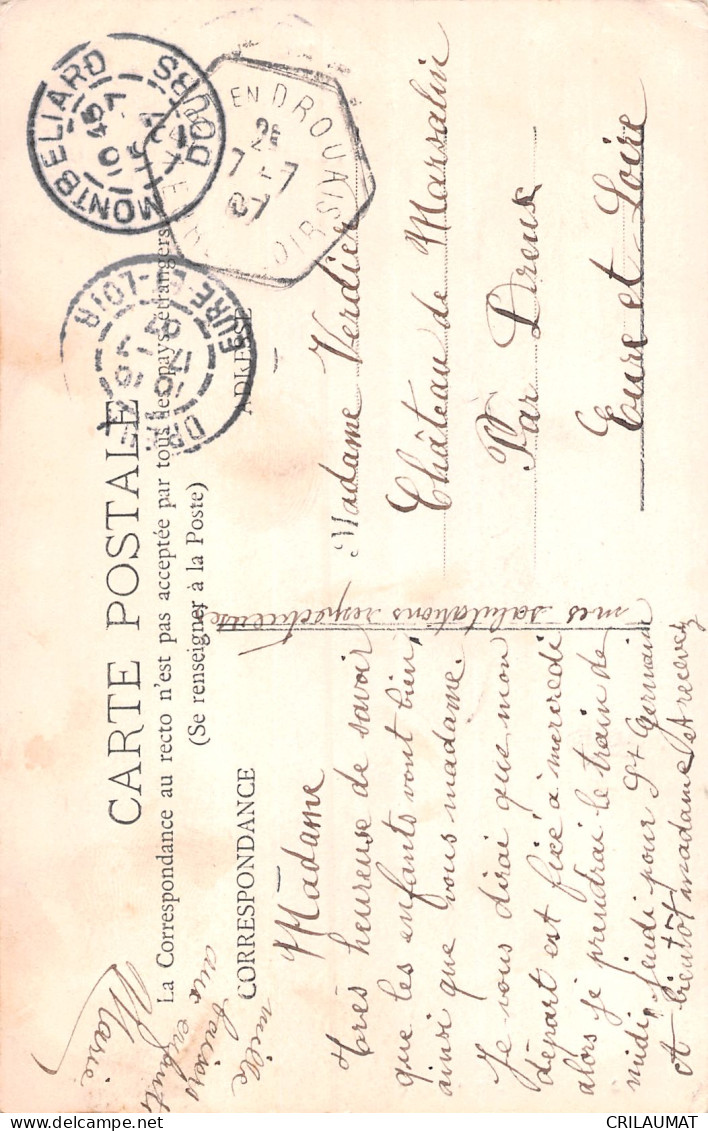 CARTE POSTALE
La Correspondance au recto n'est pas acceptée par tous les pays étrangers
(Se renseigner à la Poste)
CORRESPONDANCE
ADRESSE
Madame
très heureuse de savoir
que les enfants vont bien,
ainsi que vous madame.
Je vous dirai que mon
départ est ficé à mercredi
alors je prendrai le train de
midi, jeudi pour St Germain
A bientôt madame et recevez
mes salutations respectueuse
mille
baisers
aux enfants
Marie
Madame Verdier
Château de Marsalin
Par Dreux
Eure et Loire
MONTBELIARD
DOUBS
EURE-ET-LOIR
CRILAUMAT